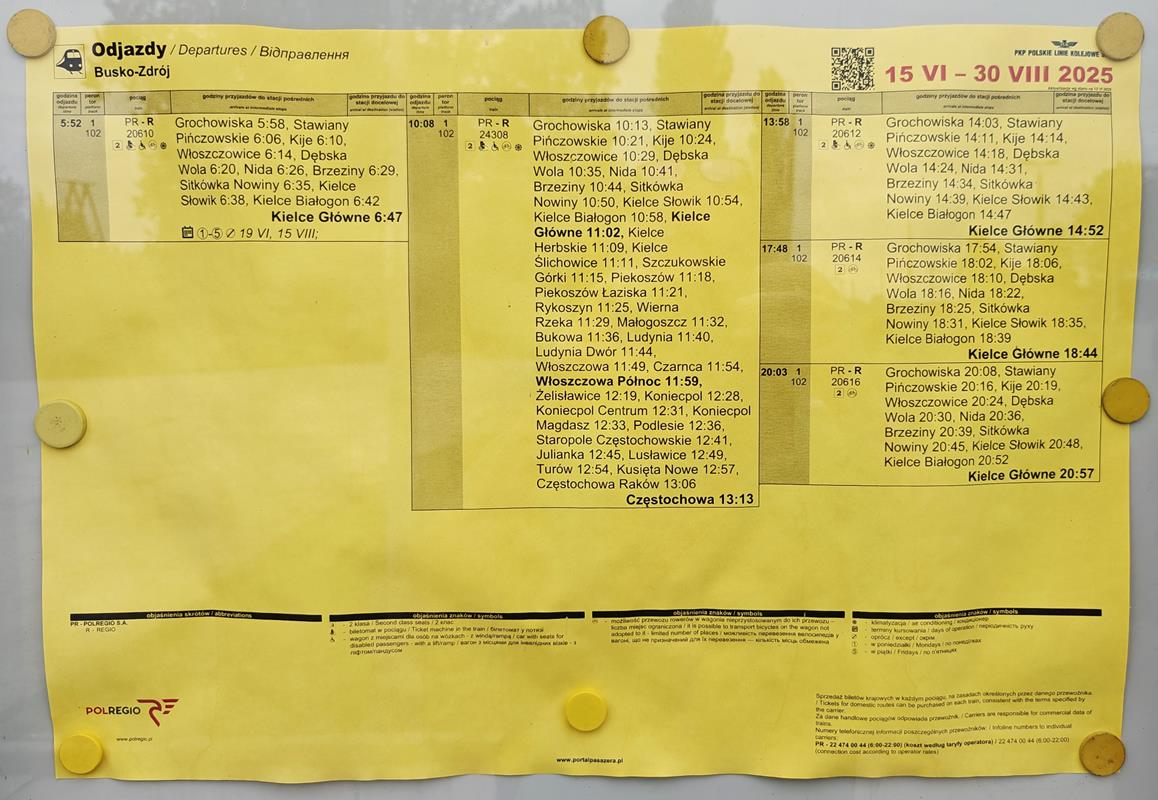 Odjazdy / Departures / Відправлення
Busko-Zdrój
PKP POLSKIE LINIE KOLEJOWE
15 VI – 30 VIII 2025
godzina odjazdu peron tor pociąg godziny przyjazdów do stacji pośrednich godzina przyjazdu do stacji docelowej
5:52 1 102 PR - R 20610
Grochowiska 5:58, Stawiany
Pińczowskie 6:06, Kije 6:10,
Włoszczowice 6:14, Dębska
Wola 6:20, Nida 6:26, Brzeziny 6:29,
Sitkówka Nowiny 6:35, Kielce
Słowik 6:38, Kielce Białogon 6:42
Kielce Główne 6:47
①-⑤ 19 VI, 15 VIII;
godzina odjazdu peron tor pociąg godziny przyjazdów do stacji pośrednich godzina przyjazdu do stacji docelowej
10:08 1 102 PR - R 24308
Grochowiska 10:13, Stawiany
Pińczowskie 10:21, Kije 10:24,
Włoszczowice 10:29, Dębska
Wola 10:35, Nida 10:41,
Brzeziny 10:44, Sitkówka
Nowiny 10:50, Kielce Słowik 10:54,
Kielce Białogon 10:58, Kielce
Główne 11:02, Kielce
Herbskie 11:09, Kielce
Ślichowice 11:11, Szczukowskie
Górki 11:15, Piekoszów 11:18,
Piekoszów Łaziska 11:21,
Rykoszyn 11:25, Wierna
Rzeka 11:29, Małogoszcz 11:32,
Bukowa 11:36, Ludynia 11:40,
Ludynia Dwór 11:44,
Włoszczowa 11:49, Czarnca 11:54,
Włoszczowa Północ 11:59,
Żelisławice 12:19, Koniecpol 12:28,
Koniecpol Centrum 12:31, Koniecpol
Magdasz 12:33, Podlesie 12:36,
Staropole Częstochowskie 12:41,
Julianka 12:45, Lusławice 12:49,
Turów 12:54, Kusięta Nowe 12:57,
Częstochowa Raków 13:06
Częstochowa 13:13
godzina odjazdu peron tor pociąg godziny przyjazdów do stacji pośrednich godzina przyjazdu do stacji docelowej
13:58 1 102 PR - R 20612
Grochowiska 14:03, Stawiany
Pińczowskie 14:11, Kije 14:14,
Włoszczowice 14:18, Dębska
Wola 14:24, Nida 14:31,
Brzeziny 14:34, Sitkówka
Nowiny 14:39, Kielce Słowik 14:43,
Kielce Białogon 14:47
Kielce Główne 14:52
17:48 1 102 PR - R 20614
Grochowiska 17:54, Stawiany
Pińczowskie 18:02, Kije 18:06,
Włoszczowice 18:10, Dębska
Wola 18:16, Nida 18:22,
Brzeziny 18:25, Sitkówka
Nowiny 18:31, Kielce Słowik 18:35,
Kielce Białogon 18:39
Kielce Główne 18:44
20:03 1 102 PR - R 20616
Grochowiska 20:08, Stawiany
Pińczowskie 20:16, Kije 20:19,
Włoszczowice 20:24, Dębska
Wola 20:30, Nida 20:36,
Brzeziny 20:39, Sitkówka
Nowiny 20:45, Kielce Słowik 20:48,
Kielce Białogon 20:52
Kielce Główne 20:57
objaśnienia skrótów / abbreviations
PR - POLREGIO S.A.
R - REGIO
objaśnienia znaków / symbols
- 2 klasa / Second class seats / 2 клас
- biletomat w pociągu / Ticket machine in the train / білетомат у потязі
- wagon z miejscami dla osób na wózkach - z windą/rampą / car with seats for
disabled passengers - with a lift/ramp / вагон з місцями для інвалідних візків - з
ліфтом/пандусом
objaśnienia znaków / symbols
- możliwość przewozu rowerów w wagonie nieprzystosowanym do ich przewozu –
liczba miejsc ograniczona / it is possible to transport bicycles on the wagon not
adopted to it - limited number of places / можливість перевезення велосипедів у
вагоні, що не призначений для їх перевезення — кількість місць обмежена
objaśnienia znaków / symbols
- klimatyzacja / air conditioning / кондиціонер
- terminy kursowania / days of operation / періодичність руху
- oprócz / except / окрім
① - w poniedziałki / Mondays / по понеділках
⑤ - w piątki / Fridays / по п'ятницях
POLREGIO
www.polregio.pl
www.portalpasazera.pl
Sprzedaż biletów krajowych w każdym pociągu, na zasadach określonych przez danego przewoźnika.
/ Tickets for domestic routes can be purchased on each train, consistent with the terms specified by
the carrier.
Za dane handlowe pociągów odpowiada przewoźnik. / Carriers are responsible for commercial data of
trains.
Numery telefonicznej informacji poszczególnych przewoźników: / Infoline numbers to individual
carriers:
PR - 22 474 00 44 (6:00-22:00) (koszt według taryfy operatora) / 22 474 00 44 (6:00-22:00)
(connection cost according to operator rates)